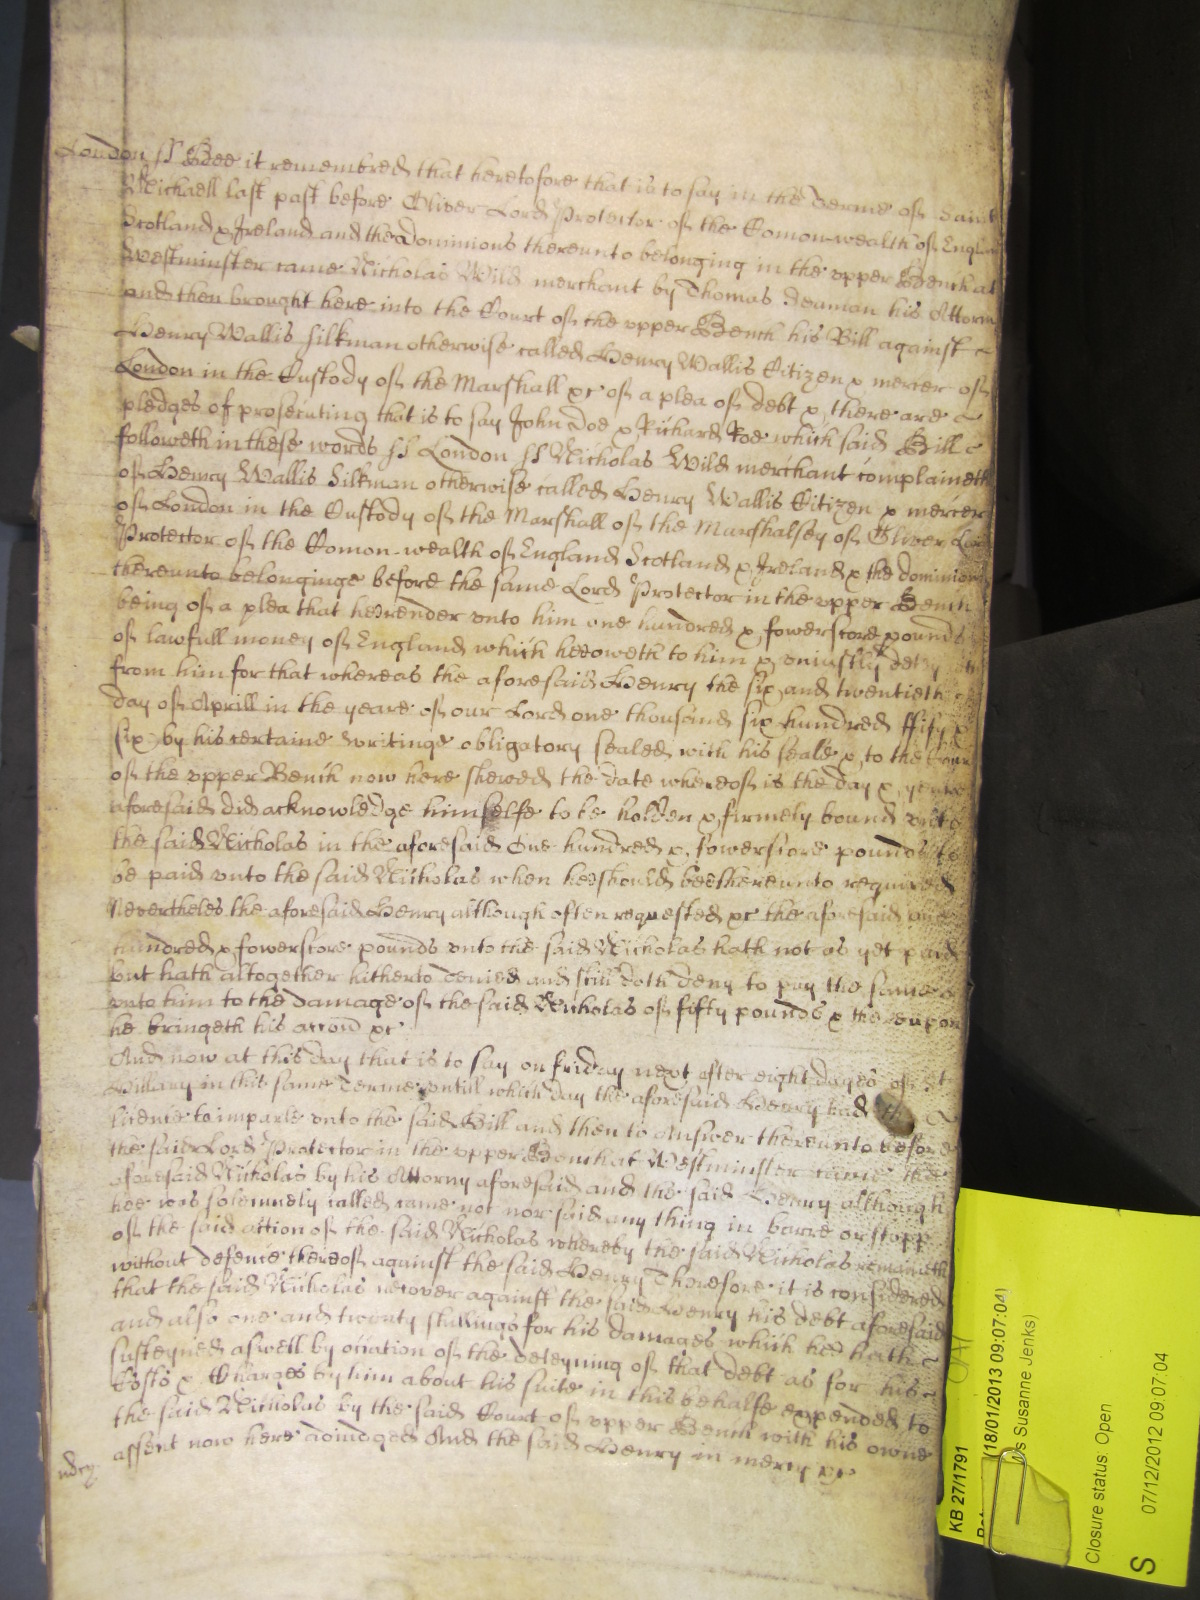 London ss Bee it remembred that heretofore that is to say in the Terme of Saint
Michaell last past before Oliver Lord Protector of the Comon-wealth of England
Scotland & Ireland and the Dominions thereunto belonging in the upper Bench at
Westminster came Nicholas Wild merchant by Thomas Jenman his Attorn
and then brought here into the Court of the upper Bench his Bill against
Henry Wallis silkman otherwise called Henry Wallis Citizen & mercer of
London in the Custody of the Marshall &c of a plea of debt & there are
pledges of prosecuting that is to say John Doe & Richard Roe which said Bill
followeth in these words ss London ss Nicholas Wild merchant complaineth
of Henry Wallis Silkman otherwise called Henry Wallis Citizen & mercer
of London in the Custody of the Marshall of the Marshalsey of Oliver Lord
Protector of the Comon-wealth of England Scotland & Ireland & the dominions
thereunto belonginge before the same Lord Protector in the upper Bench
being of a plea that hee render unto him one hundred & fowerscore pounds
of lawfull money of England which hee oweth to him & uniustly deteyneth
from him for that whereas the aforesaid Henry the six and twentieth
day of Aprill in the yeare of our Lord one thousand six hundred fifty &
six by his certaine writinge obligatory sealed with his seale & to the Court
of the upper Bench now here shewed the date whereof is the day & yeare
aforesaid did acknowledge himselfe to be holden & firmely bound unto
the said Nicholas in the aforesaid One hundred & fowerscore pounds to
be paid unto the said Nicholas when hee should bee thereunto required
Nevertheles the aforesaid Henry although often requested &c the aforesaid one
hundred & fowerscore pounds unto the said Nicholas hath not as yet paid
but hath altogether hitherto denied and still doth deny to pay the same
unto him to the damage of the said Nicholas of fifty pounds & thereupon
he bringeth his accon &c
And now at this day that is to say on friday next after eight dayes of St
Hillary in this same Terme untill which day the aforesaid Henry had
licence to imparle unto the said Bill and then to Answer thereunto before
the said Lord Protector in the upper Bench at Westminster came the
aforesaid Nicholas by his Attorny aforesaid and the said Henry although
hee was solemnely called came not nor said any thing in barre or stopp
of the said action of the said Nicholas whereby the said Nicholas remaineth
without defence thereof against the said Henry Therefore it is considered
that the said Nicholas recover against the said Henry his debt aforesaid
and also one and twenty shillings for his damages which hee hath
susteyned aswell by occation of the deteyning of that debt as for his
Costs & Charges by him about his suite in this behalfe expended to
the said Nicholas by the said Court of upper Bench with his owne
assent now here adiudged And the said Henry in mercy &c
mdcy
KB 27/1791
(18/01/2013 09:07:04)
s Susanne Jenks)
Closure status: Open
07/12/2012 09:07:04
S